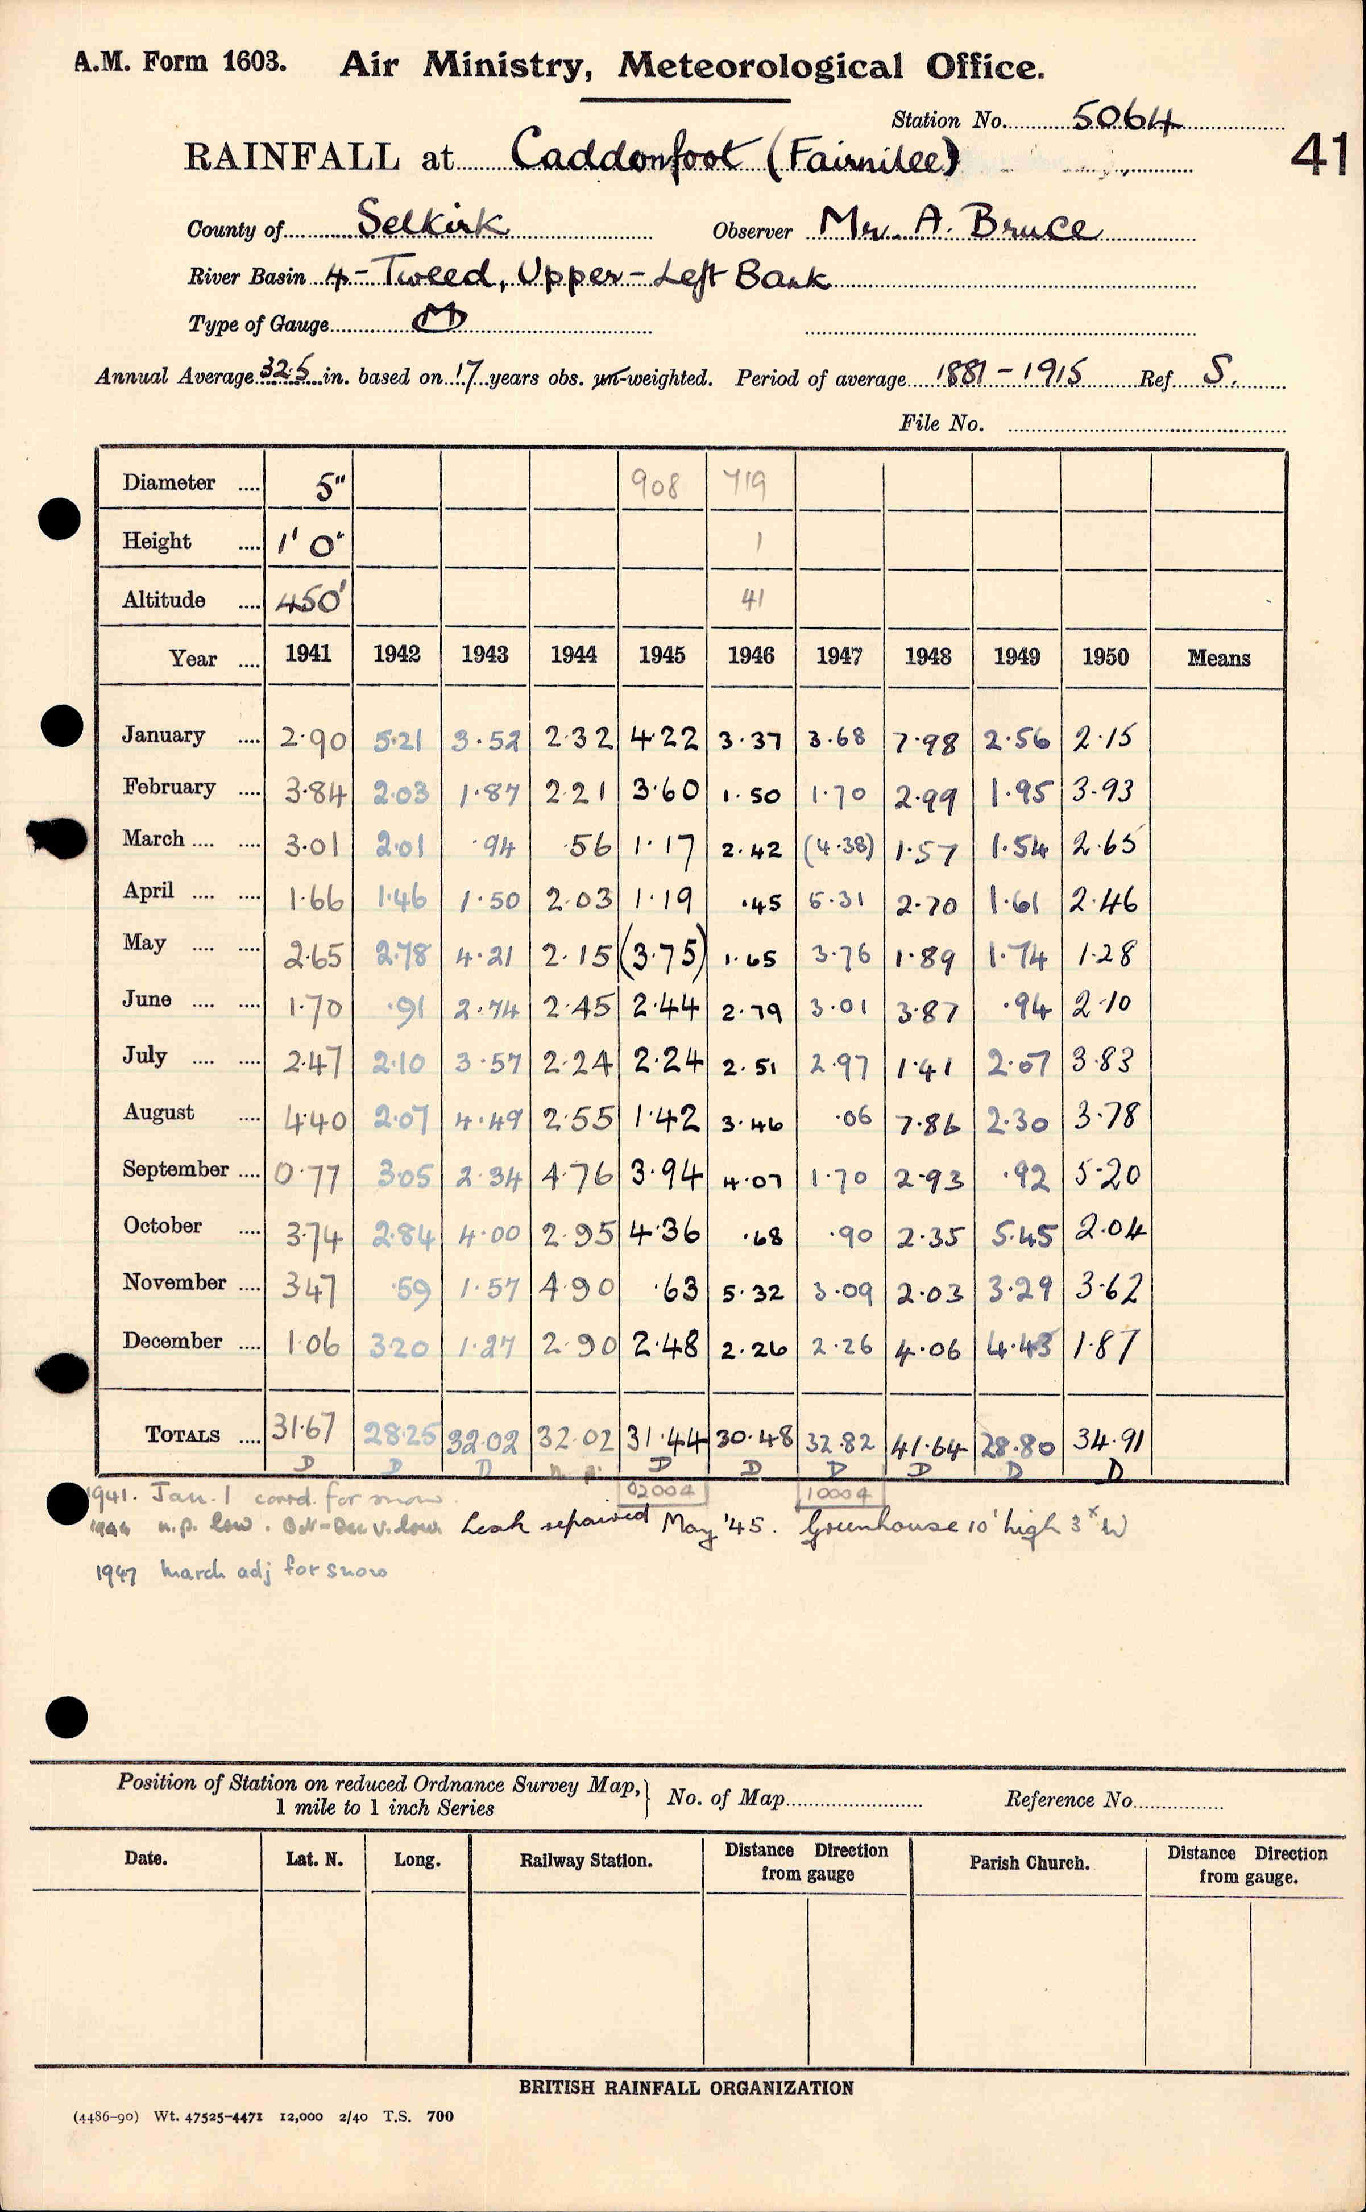 A.M. Form 1603. Air Ministry, Meteorological Office.
Station No. 5064
41
RAINFALL at Caddonfoot (Fairnilee)
County of Selkirk Observer Mr. A. Bruce
River Basin 4 - Tweed, Upper - Left Bank
Type of Gauge M
Annual Average 32.5 in. based on 17 years obs. un-weighted. Period of average 1881 - 1915 Ref S.
File No.
Diameter .... 5" 908 719
Height .... 1' 0" 1
Altitude .... 450' 41
Year .... 1941 1942 1943 1944 1945 1946 1947 1948 1949 1950 Means
January .... 2.90 5.21 3.52 2.32 4.22 3.37 3.68 7.98 2.56 2.15
February .... 3.84 2.03 1.87 2.21 3.60 1.50 1.70 2.99 1.95 3.93
March .... .... 3.01 2.01 .94 .56 1.17 2.42 (4.38) 1.57 1.54 2.65
April .... .... 1.66 1.46 1.50 2.03 1.19 .45 5.31 2.70 1.61 2.46
May .... .... 2.65 2.78 4.21 2.15 (3.75) 1.65 3.76 1.89 1.74 1.28
June .... .... 1.70 .91 2.74 2.45 2.44 2.79 3.01 3.87 .94 2.10
July .... .... 2.47 2.10 3.57 2.24 2.24 2.51 2.97 1.41 2.07 3.83
August .... 4.40 2.07 4.49 2.55 1.42 3.46 .06 7.86 2.30 3.78
September .... 0.77 3.05 2.34 4.76 3.94 4.07 1.70 2.93 .92 5.20
October .... 3.74 2.84 4.00 2.95 4.36 .68 .90 2.35 5.45 2.04
November .... 3.47 .59 1.57 4.90 .63 5.32 3.09 2.03 3.29 3.62
December .... 1.06 3.20 1.27 2.90 2.48 2.26 2.26 4.06 4.43 1.87
TOTALS .... 31.67 28.25 32.02 32.02 31.44 30.48 32.82 41.64 28.80 34.91
D D D n.p. D D D D D D
02004 10004
1941. Jan. 1 corrd. for snow.
1944 n.p. low. Oct-Dec v. low Leak repaired May '45. Greenhouse 10' high 3x W
1947 March adj for snow
Position of Station on reduced Ordnance Survey Map, 1 mile to 1 inch Series } No. of Map Reference No.
Date. Lat. N. Long. Railway Station. Distance from gauge Direction Parish Church. Distance from gauge. Direction
BRITISH RAINFALL ORGANIZATION
(4486-90) Wt. 47525-4471 12,000 2/40 T.S. 700